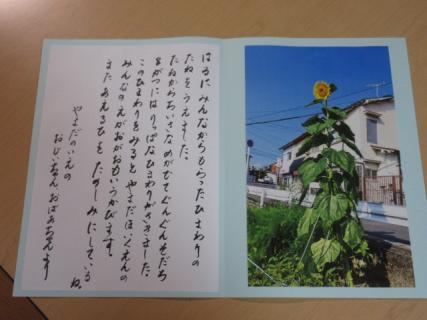 はるに みんなからもらったひまわりの
たねをうえました。
たねからちいさなめがでてぐんぐんそだち
8がつにはりっぱなひまわりがさきました。
このひまわりをみると やまだほいくえんの
みんなのえがおがおもいうかびます。
また あえるひを たのしみにしている
ね。
やまだのいえの
おじいちゃん、おばあちゃんより